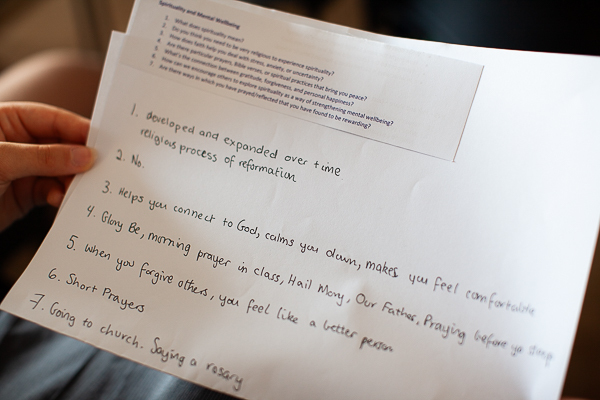 Spirituality and Mental Wellbeing
1. What does spirituality mean?
2. Do you think you need to be very religious to experience spirituality?
3. How does faith help you deal with stress, anxiety, or uncertainty?
4. Are there particular prayers, Bible verses, or spiritual practices that bring you peace?
5. What's the connection between gratitude, forgiveness, and personal happiness?
6. How can we encourage others to explore spirituality as a way of strengthening mental wellbeing?
7. Are there ways in which you have prayed/reflected that you have found to be rewarding?
1. developed and expanded over time
religious process of reformation
2. No.
3. Helps you connect to God, calms you down, makes you feel comfortable
4. Glory Be, morning prayer in class, Hail Mary, Our Father, Praying before yo sleep
5. when you forgive others, you feel like a better person
6. Short Prayers
7. Going to church. Saying a rosary